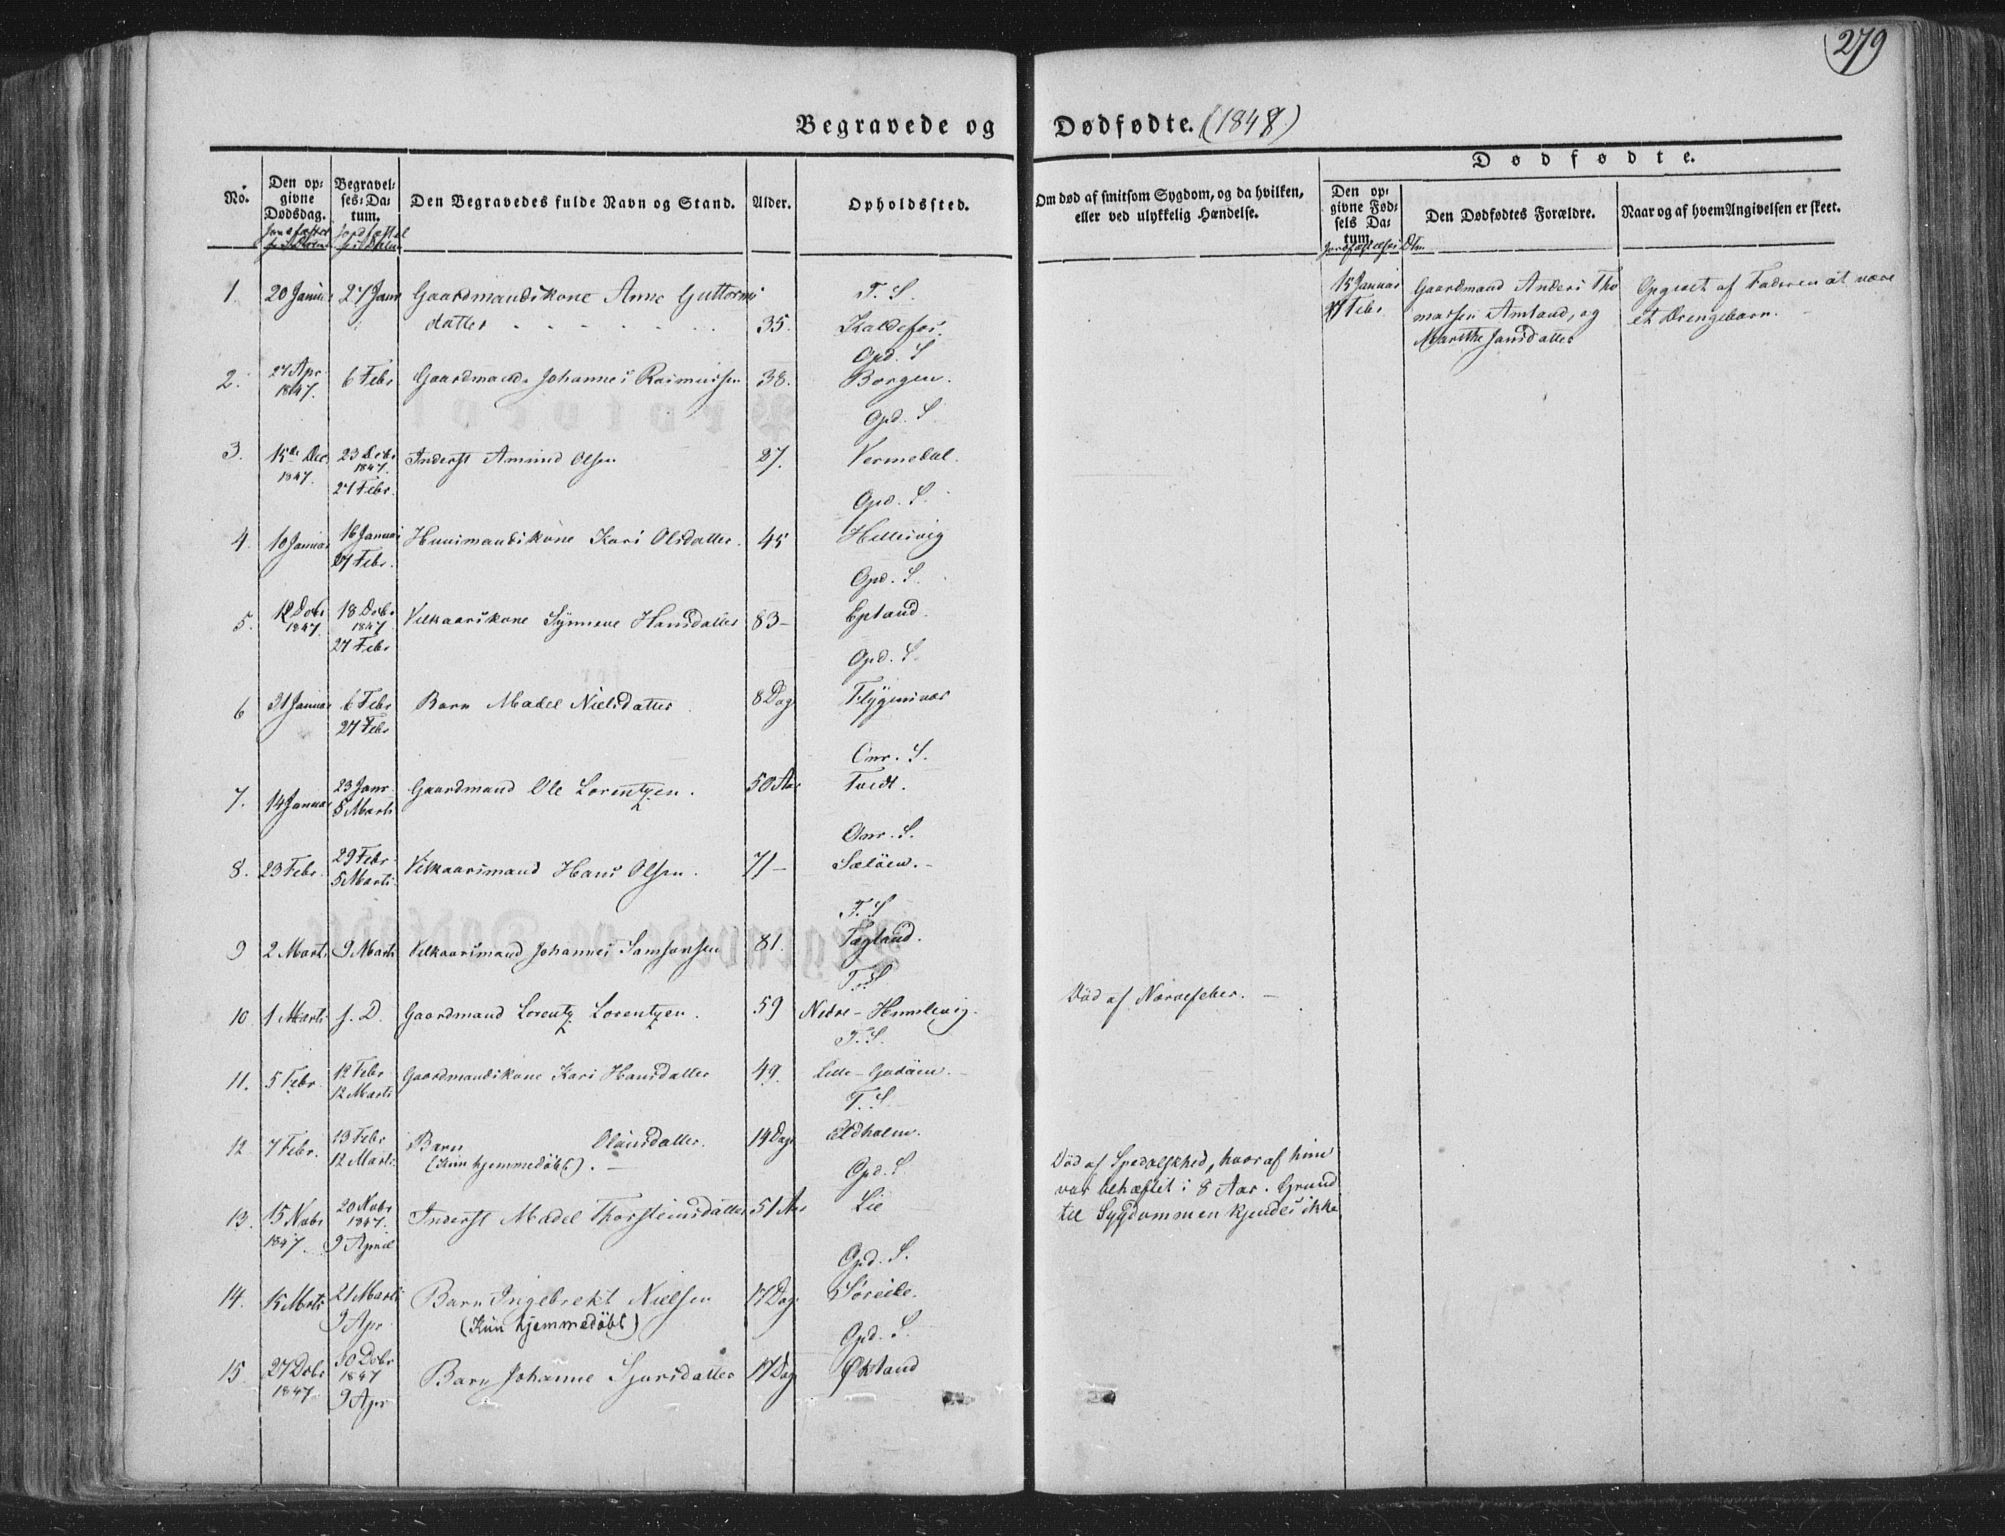 279
Begravede og Dødfødte. (1848)
No.
Den op-
givne
Dødsdag.
Begravel-
ses-Da-
tum.
Den Begravedes fulde Navn og Stand.
Alder.
Opholdssted.
Om død af smitsom Sygdom, og da hvilken,
eller ved ulykkelig Hændelse.
Dødfødte.
Den op-
givne Fød-
sels Da-
tum.
Den Dødfødtes Forældre.
Naar og af hvem Angivelsen er skeet.
1. 20 Januar 27 Janr Gaardmandskone Anne Guttorms T. S.
datter 35. Kaldefos.
Opd. S
2. 27 Apr 6 Febr Gaardmand Johannes Rasmussen 38. Borgen.
1847.
Opd. S
3. 15de Dec 23 Dcbr Inderst Amund Olsen 27. Vermedal.
1847. 1847.
27 Febr.
Opd. S.
4. 10 Januar 16 Januar Huusmandskone Kari Olsdatter. 45 Hellesvig
27 Febr.
Opd. S.
5. 12 Dcbr 18 Dcbr Vilkaarskone Synneve Hansdatter 83 – Epland.
1847. 1847.
27 Febr
Opd. S.
6 31 Januar 6 Febr Barn Madel Nielsdatter 8 Dage Flygensvær
27 Febr
Onr. S.
7. 14 Januar 23 Janr. Gaardmand Ole Lorentzen. 50 Aar Tvedt.
5 Marts
Onr. S.
8. 23 Febr. 29 Febr. Vilkaarsmand Hans Olsen. 71 – Sæløen. –
5 Marts
T. S
9 2 Marts 9 Marts Vilkaarsmand Johannes Samsonsen 81. Fagland.
T. S
10 1 Marts s. D. Gaardmand Lorentz Lorentzen. 59 Nedre-Humlevig.
T. S.
11. 5 Febr. 12 Febr Gaardmandskone Kari Hansdatter 49. Lille-Godøen. –
12 Marts
T. S
12 7 Febr. 13 Febr Barn Olausdatter. 14 Dage Eldholm.
12 Marts (Kun hjemmedøbt). –
Opd. S
13. 15 Novbr 20 Novbr Inderst Madel Thorsteinsdatter 51 Aar Lie
1847. 1847.
9 April
Opd. S.
14. 15 Mrts 21 Marts Barn Ingebrekt Nielsen 17 Dage Søreide.
9 Apr (Kun hjemmedøbt)
Opd. S.
15. 27 Dcbr 30 Dcbr Barn Johanne Sjursdatter 17 Dage Økland
1847. 1847
9 Apr
Død af Nervefeber. –
Død af Spedalskhed, hvoraf hun
var behæftet i 8 Aar. Grund
til Sygdommen kjendes ikke
15 Januar Gaardmand Anders Tho Opgivet af Faderen at være
27 Febr. massen Amland, og et Drengebarn. –
Marithe Jansdatter